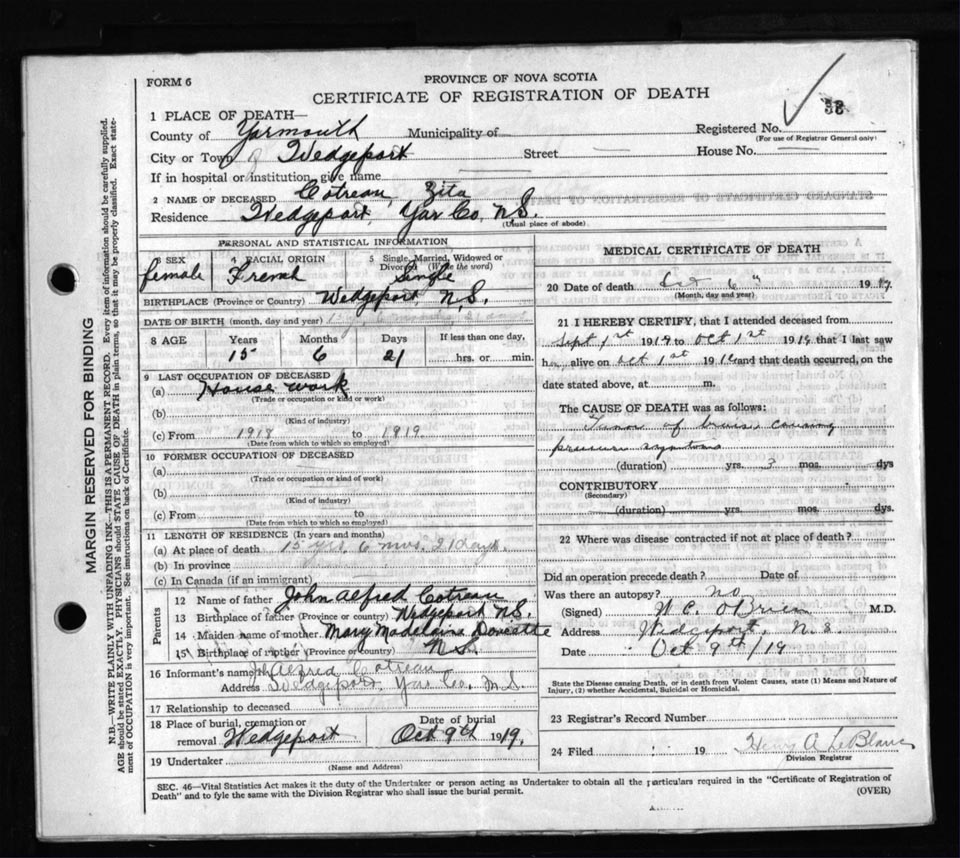 FORM 6
PROVINCE OF NOVA SCOTIA
CERTIFICATE OF REGISTRATION OF DEATH
38
1 PLACE OF DEATH—
County of Yarmouth Municipality of
Registered No.
(For use of Registrar General only)
City or Town Wedgeport Street House No.
If in hospital or institution, give name
2 NAME OF DECEASED Cotreau, Zita
Residence Wedgeport, Yar Co, N.S.
(Usual place of abode)
PERSONAL AND STATISTICAL INFORMATION
3 SEX 4 RACIAL ORIGIN 5 Single, Married, Widowed or Divorced (Write the word)
female French Single
BIRTHPLACE (Province or Country) Wedgeport, N.S.
DATE OF BIRTH (month, day and year) 15 y, 6 months, 21 days
8 AGE Years Months Days If less than one day,
15 6 21 hrs. or min.
9 LAST OCCUPATION OF DECEASED
(a) House work
(Trade or occupation or kind or work)
(b)
(Kind of industry)
(c) From 1918 to 1919
(Date from which to which so employed)
10 FORMER OCCUPATION OF DECEASED
(a)
(Trade or occupation or kind of work)
(b)
(Kind of industry)
(c) From to
(Date from which to which so employed)
11 LENGTH OF RESIDENCE (In years and months)
(a) At place of death 15 yrs, 6 mos. 21 days.
(b) In province
(c) In Canada (if an immigrant)
Parents
12 Name of father John Alfred Cotreau
13 Birthplace of father (Province or country) Wedgeport N.S.
14 Maiden name of mother Mary Madelaine Doucette
15 Birthplace of mother (Province or country) N.S.
16 Informant's name Alfred Cotreau
Address Wedgeport, Yar Co, N.S.
17 Relationship to deceased
18 Place of burial, cremation or removal Wedgeport Date of burial Oct 9th 1919.
19 Undertaker
(Name and Address)
MEDICAL CERTIFICATE OF DEATH
20 Date of death Oct 6th 19
(Month, day and year)
21 I HEREBY CERTIFY, that I attended deceased from
Sept 1st 1919 to Oct 1st 1919 that I last saw
her alive on Oct 1st 1919 and that death occurred, on the
date stated above, at m.
The CAUSE OF DEATH was as follows:
of causing
pressure
(duration) yrs. 3 mos. dys
CONTRIBUTORY
(Secondary)
(duration) yrs. mos. dys.
22 Where was disease contracted if not at place of death?
Did an operation precede death? Date of
Was there an autopsy? no
(Signed) W.C. O'Brien M.D.
Address Wedgeport, N.S.
Date Oct 9th/19
State the Disease causing Death, or in death from Violent Causes, state (1) Means and Nature of
Injury, (2) whether Accidental, Suicidal or Homicidal.
23 Registrar's Record Number
24 Filed 19 Henry A LeBlanc
Division Registrar
SEC. 46—Vital Statistics Act makes it the duty of the Undertaker or person acting as Undertaker to obtain all the particulars required in the "Certificate of Registration of
Death" and to fyle the same with the Division Registrar who shall issue the burial permit.
(OVER)
MARGIN RESERVED FOR BINDING
N.B.—WRITE PLAINLY WITH UNFADING INK—THIS IS A PERMANENT RECORD. Every item of information should be carefully supplied.
AGE should be stated EXACTLY. PHYSICIANS should STATE CAUSE OF DEATH in plain terms, so that it may be properly classified. Exact statement of OCCUPATION is very important. See instructions on back of Certificate.